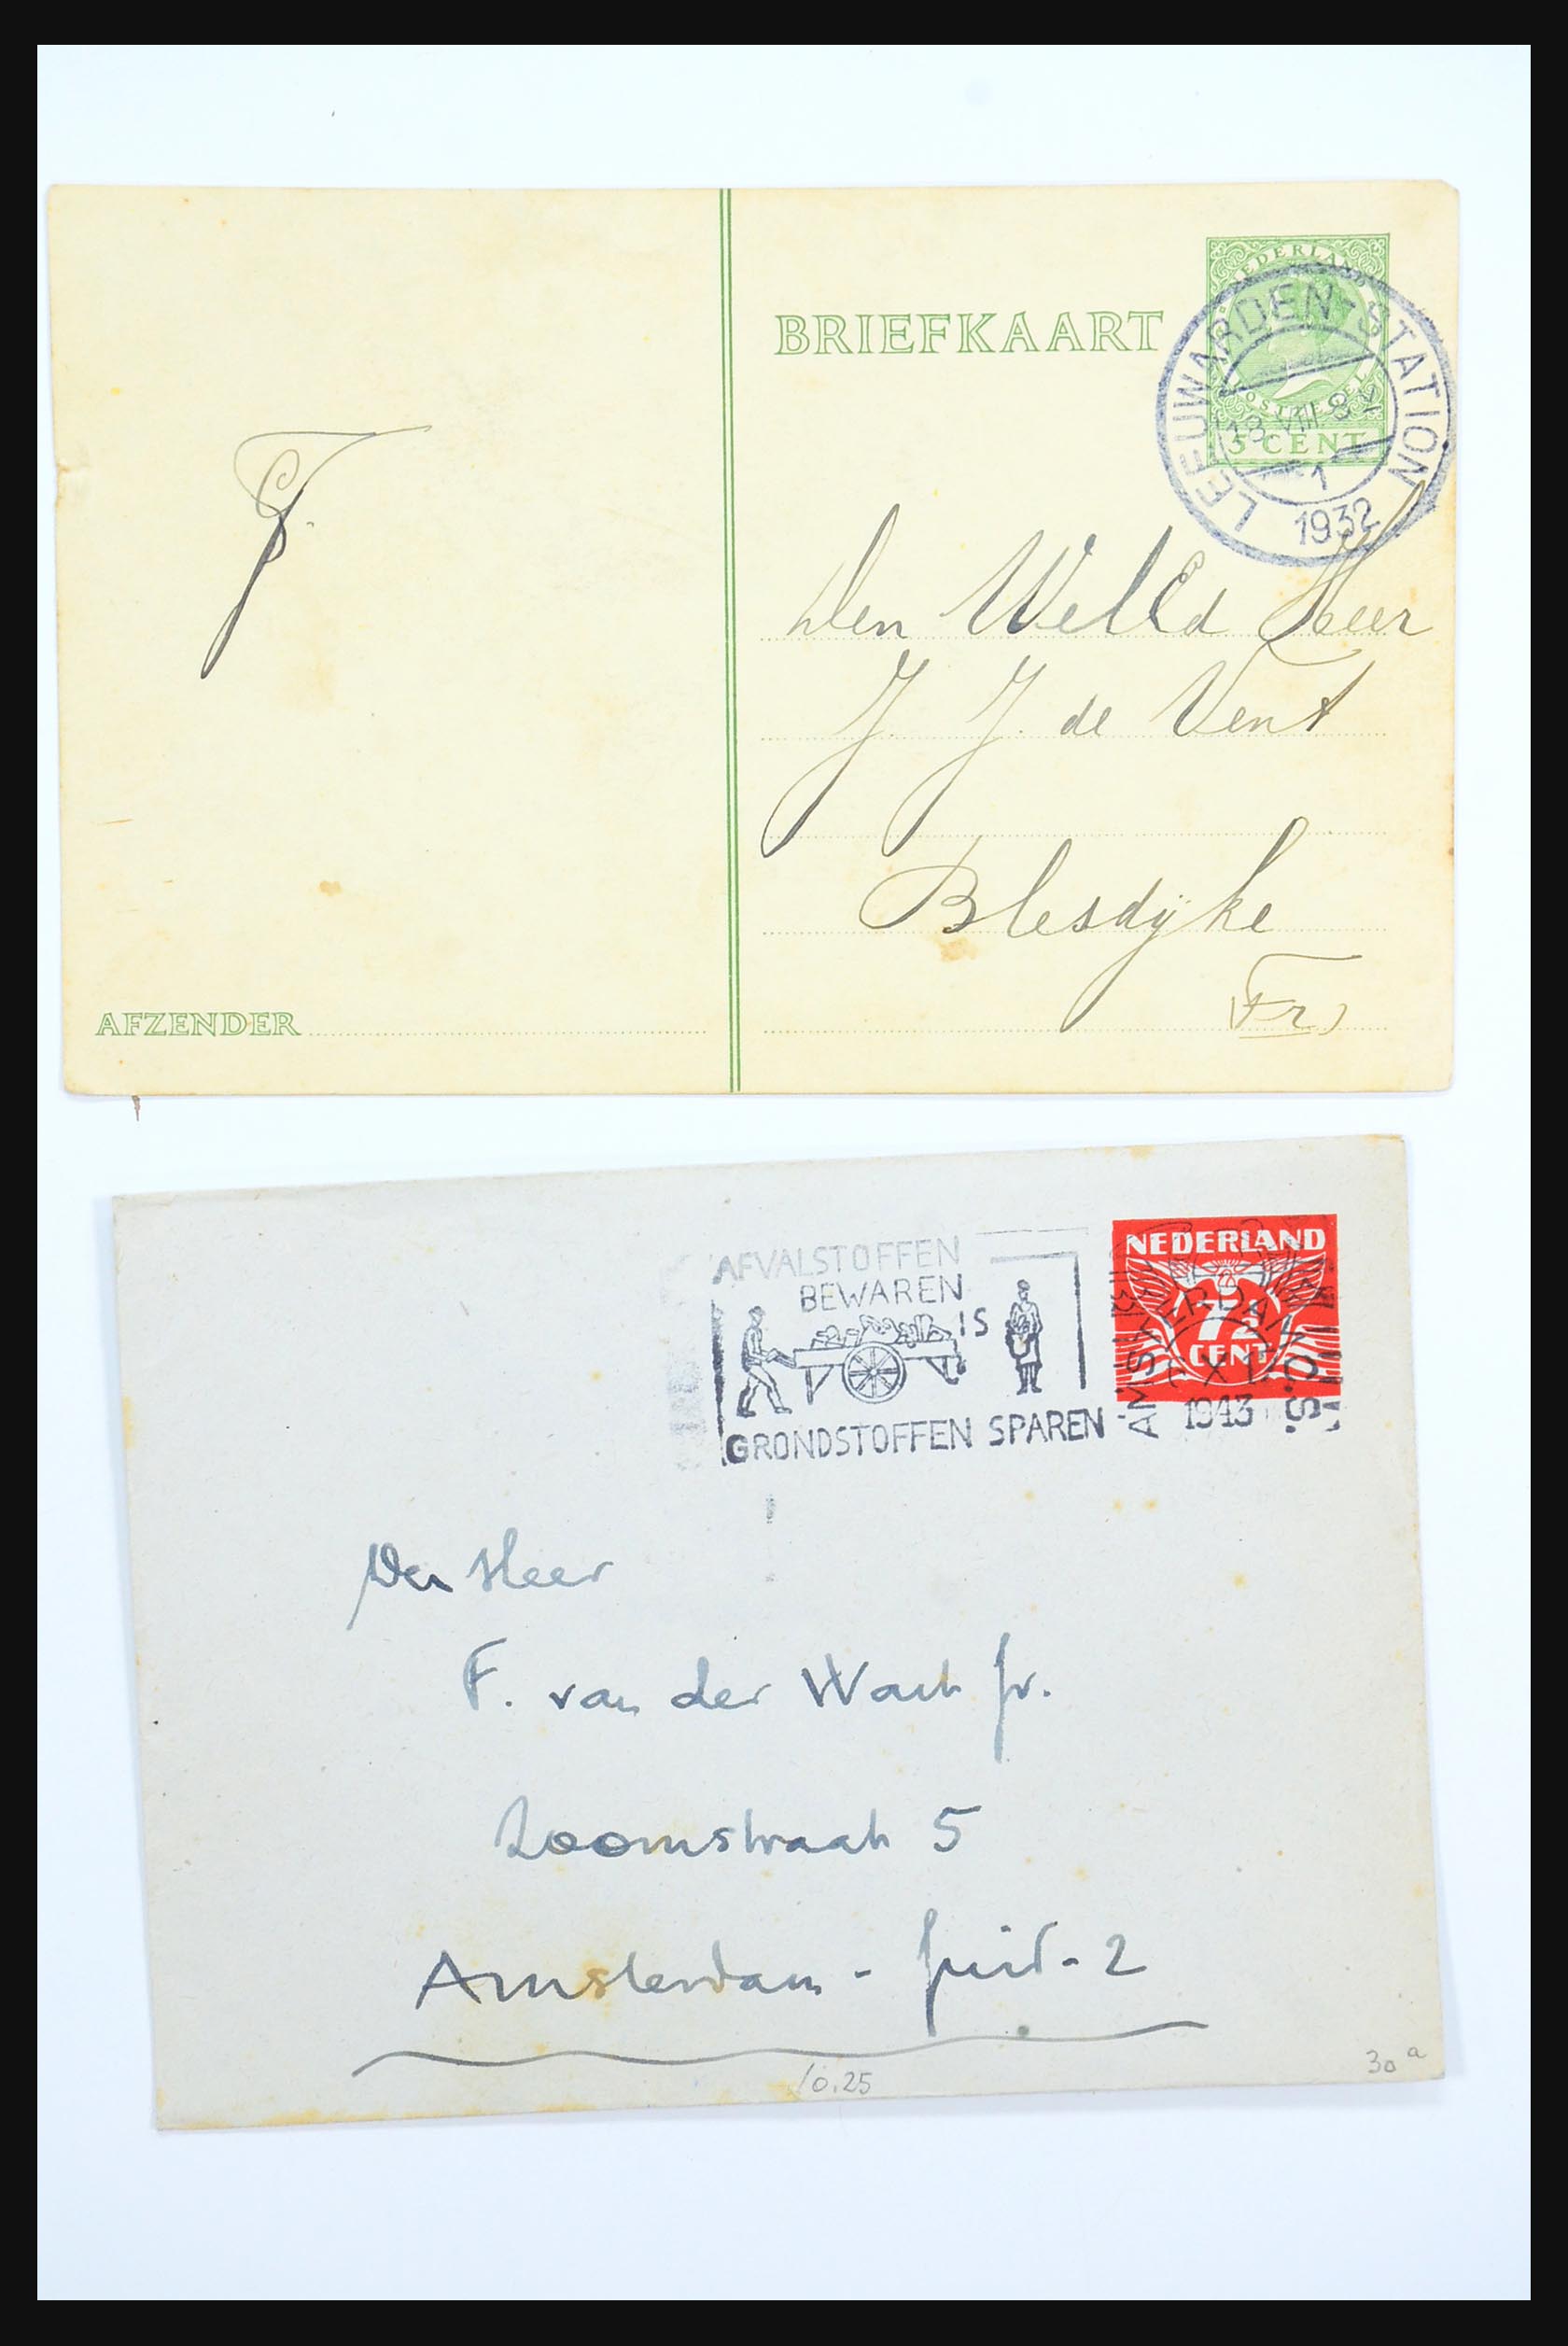 NEDERLAND
BRIEFKAART
LEEUWARDEN-STATION
18 VIII 8 V
5 CENT
1
1932
F.
Den WelEd Heer
J. J. de Vent
Blesdijke
(Fr)
AFZENDER
AFVALSTOFFEN
BEWAREN
IS
GRONDSTOFFEN SPAREN
NEDERLAND
7½
CENT
AMSTERDAM
XI
1943
Den Heer
F. van der Jr.
Zoomstraat 5
Amsterdam - Zuid - 2
10.25
30 a